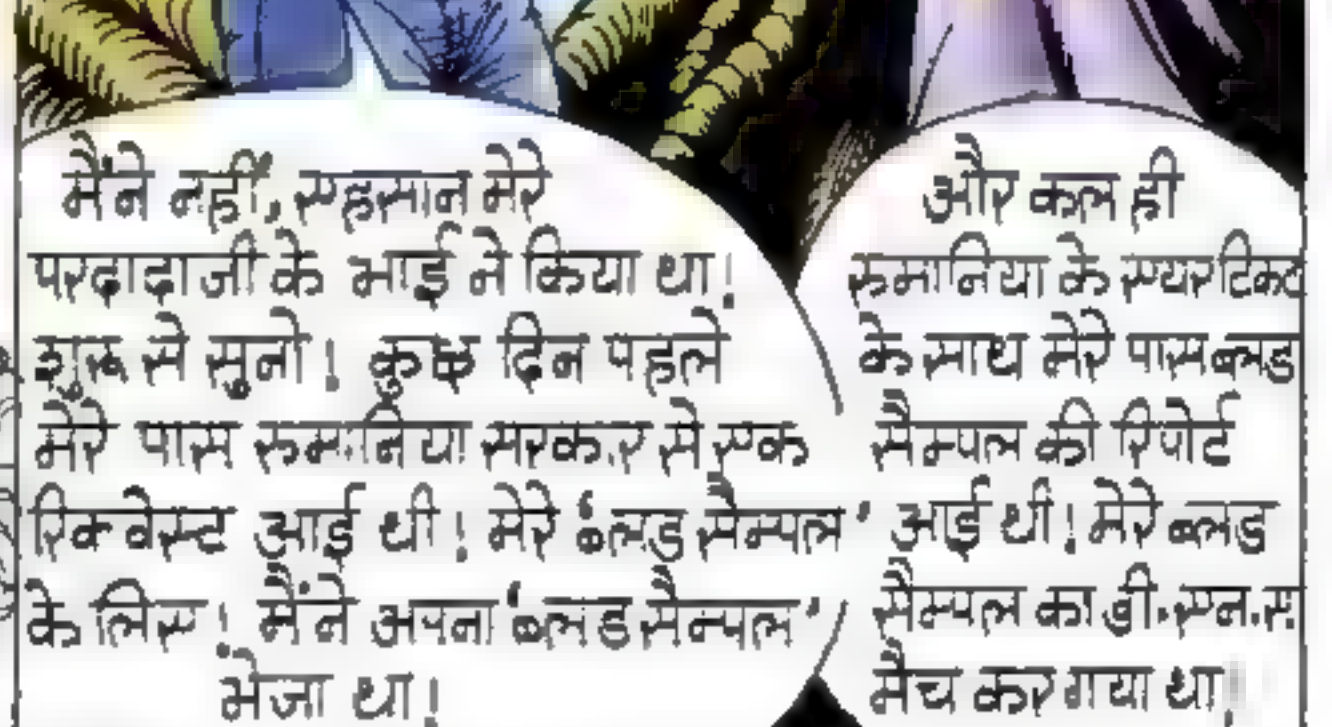 मैंने नहीं, एहसान मेरे
परदादाजी के भाई ने किया था!
शुरू से सुनो! कुछ दिन पहले
मेरे पास रुमानिया सरकार से एक
रिक्वेस्ट आई थी! मेरे 'ब्लड सैम्पल'
के लिए! मैंने अपना 'ब्लड सैम्पल'
भेजा था!
और कल ही
रुमानिया के एयर टिकट
के साथ मेरे पास ब्लड
सैम्पल की रिपोर्ट
आई थी! मेरे ब्लड
सैम्पल का डी.एन.ए.
मैच कर गया था!